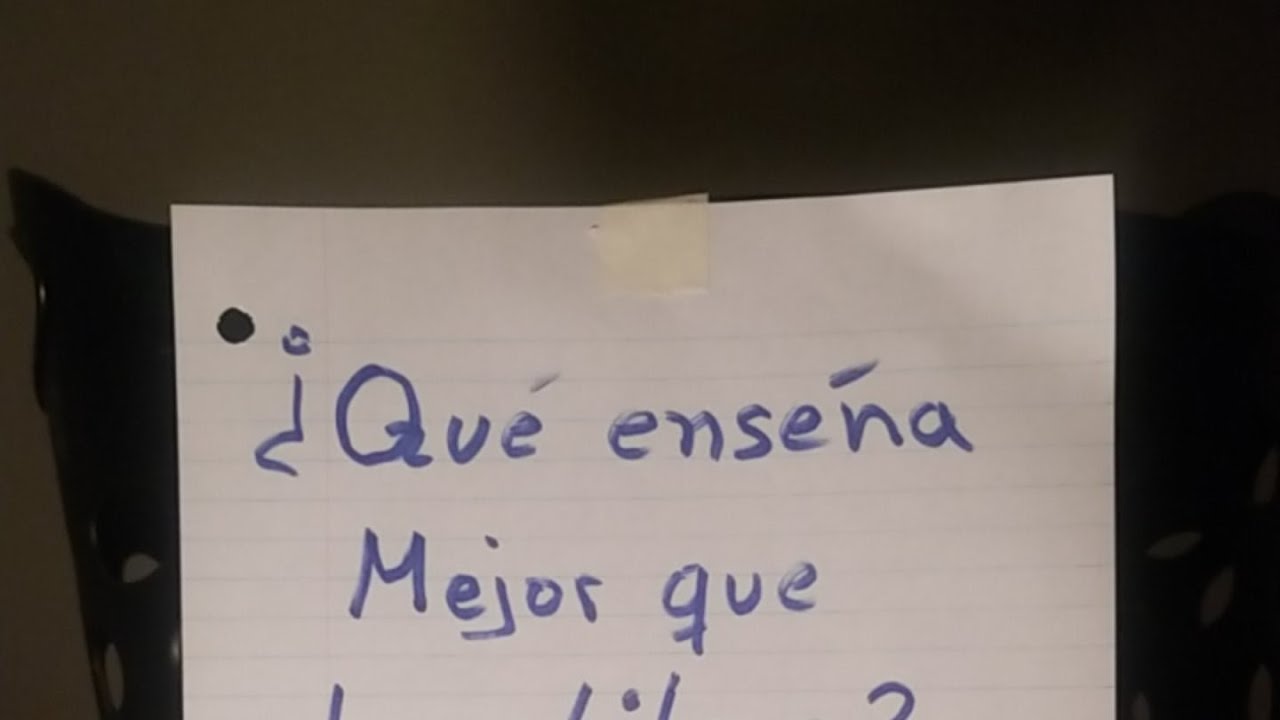 ¿Qué enseña
Mejor que